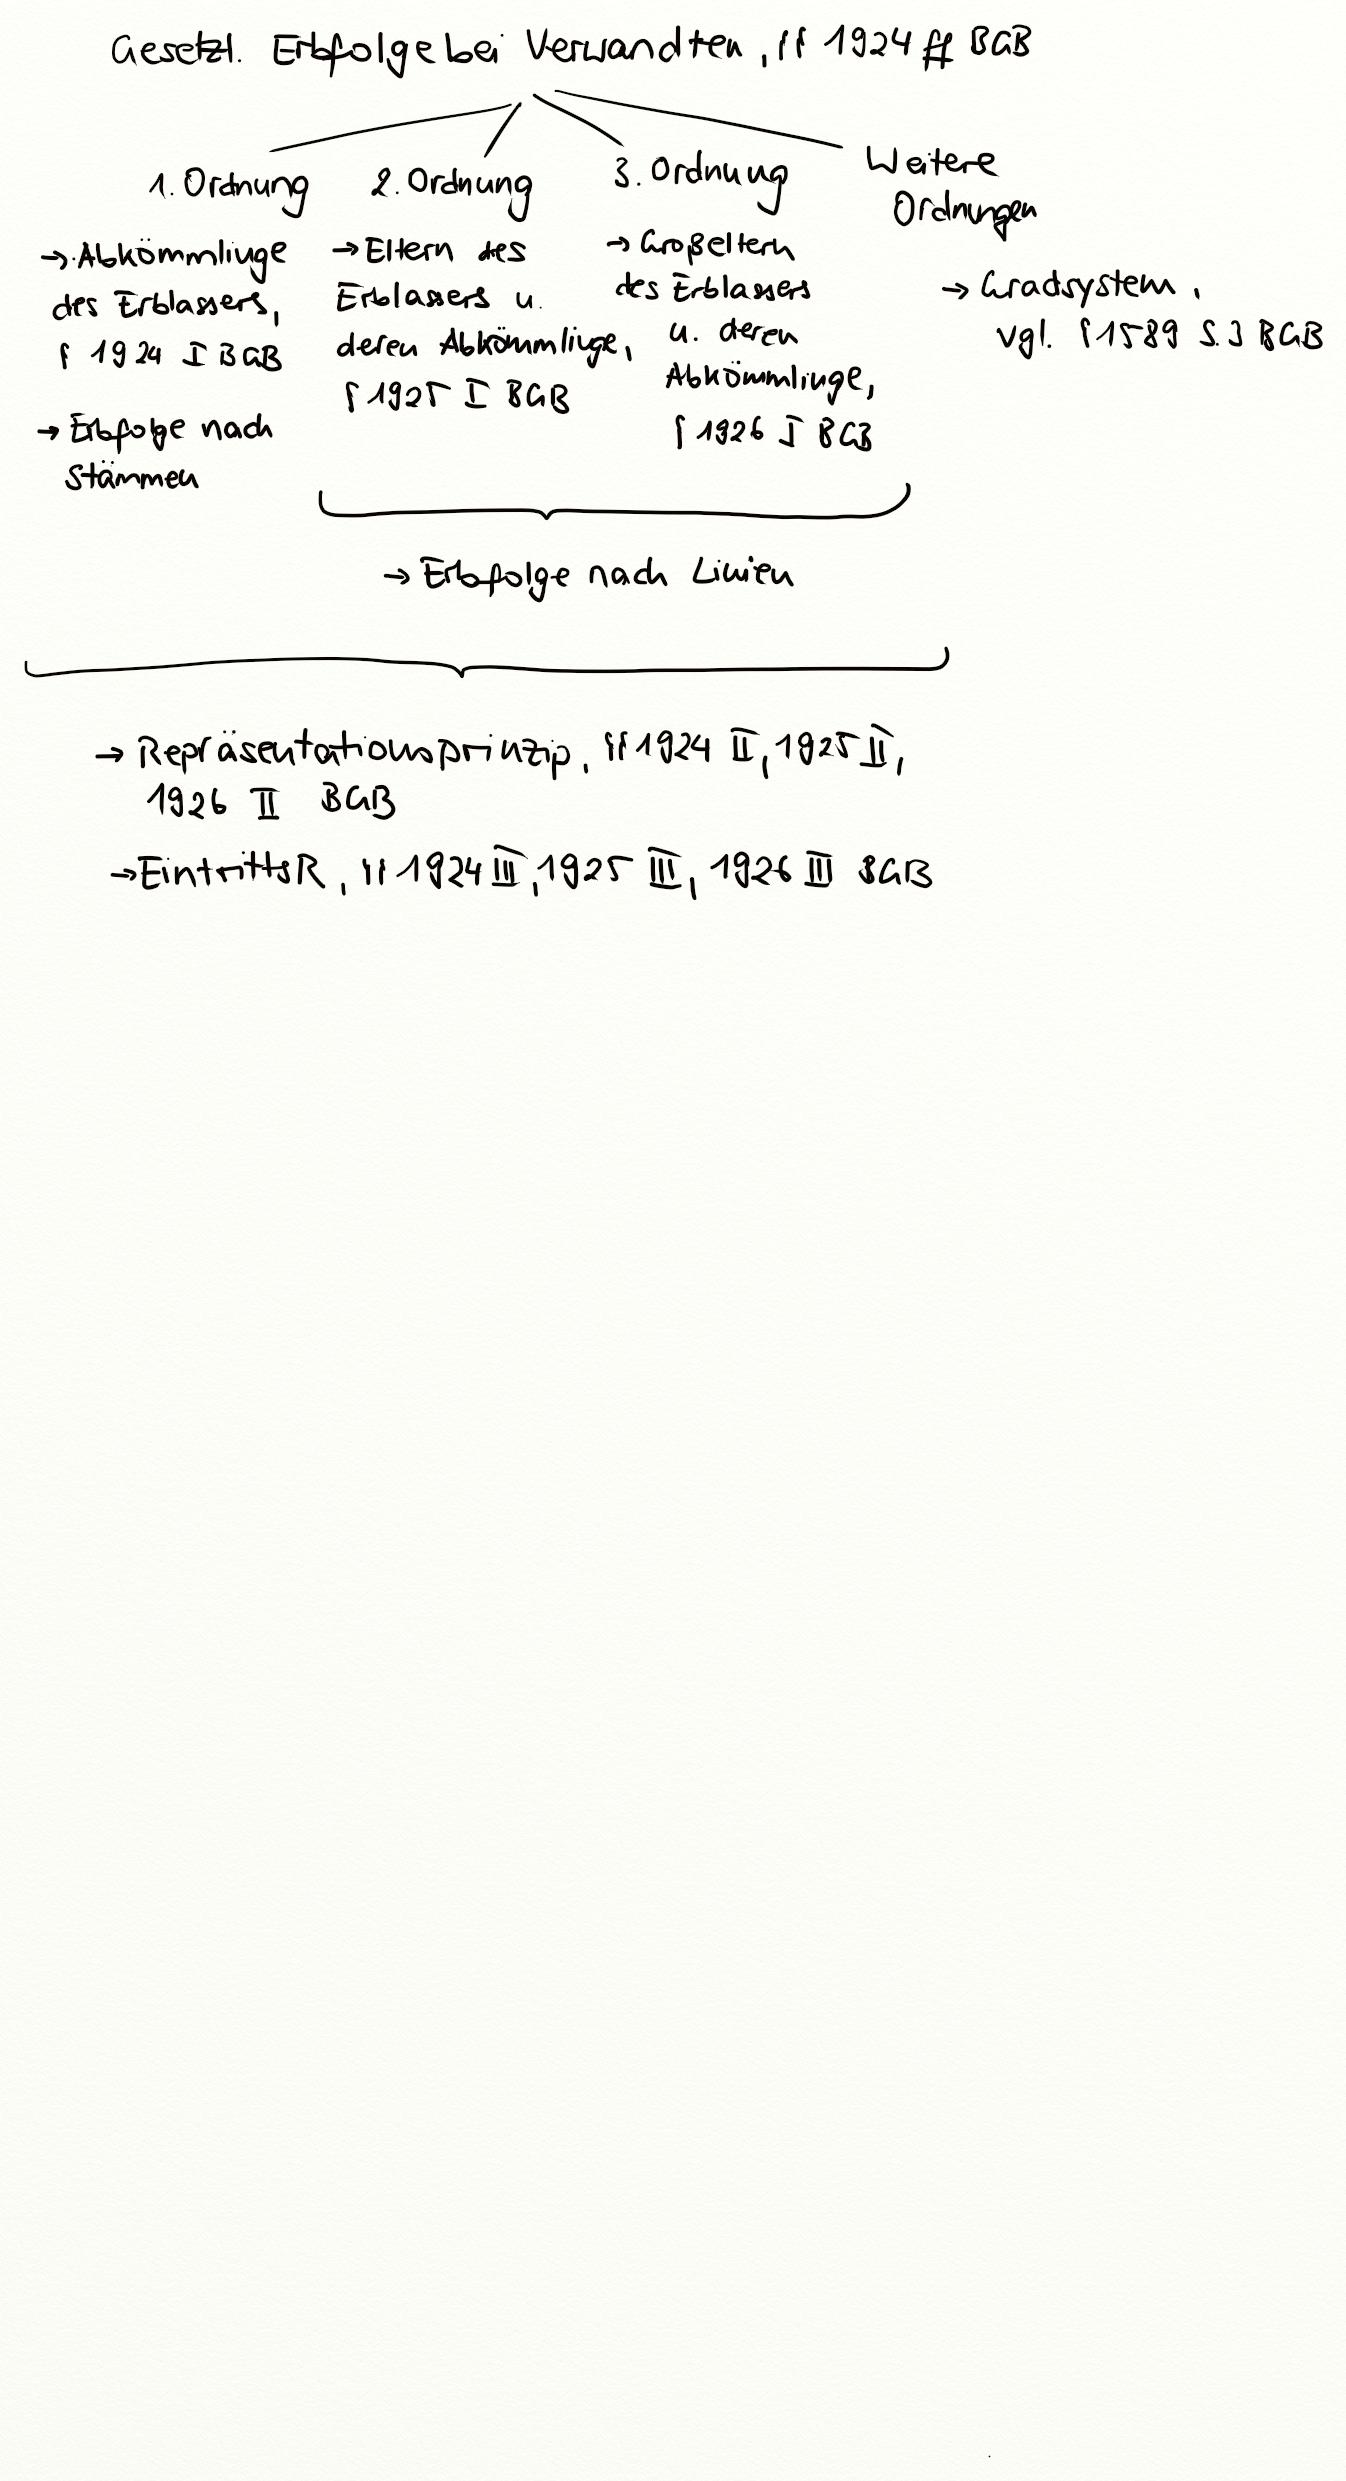 Gesetzl. Erbfolge bei Verwandten, §§ 1924 ff BGB
1. Ordnung
→ Abkömmlinge
des Erblassers,
§ 1924 I BGB
→ Erbfolge nach
Stämmen
2. Ordnung
→ Eltern des
Erblassers u.
deren Abkömmlinge,
§ 1925 I BGB
3. Ordnung
→ Großeltern
des Erblassers
u. deren
Abkömmlinge,
§ 1926 I BGB
Weitere
Ordnungen
→ Gradsystem,
vgl. § 1589 S. 3 BGB
→ Erbfolge nach Linien
→ Repräsentationsprinzip, §§ 1924 II, 1925 II,
1926 II BGB
→ EintrittsR, §§ 1924 III, 1925 III, 1926 III BGB